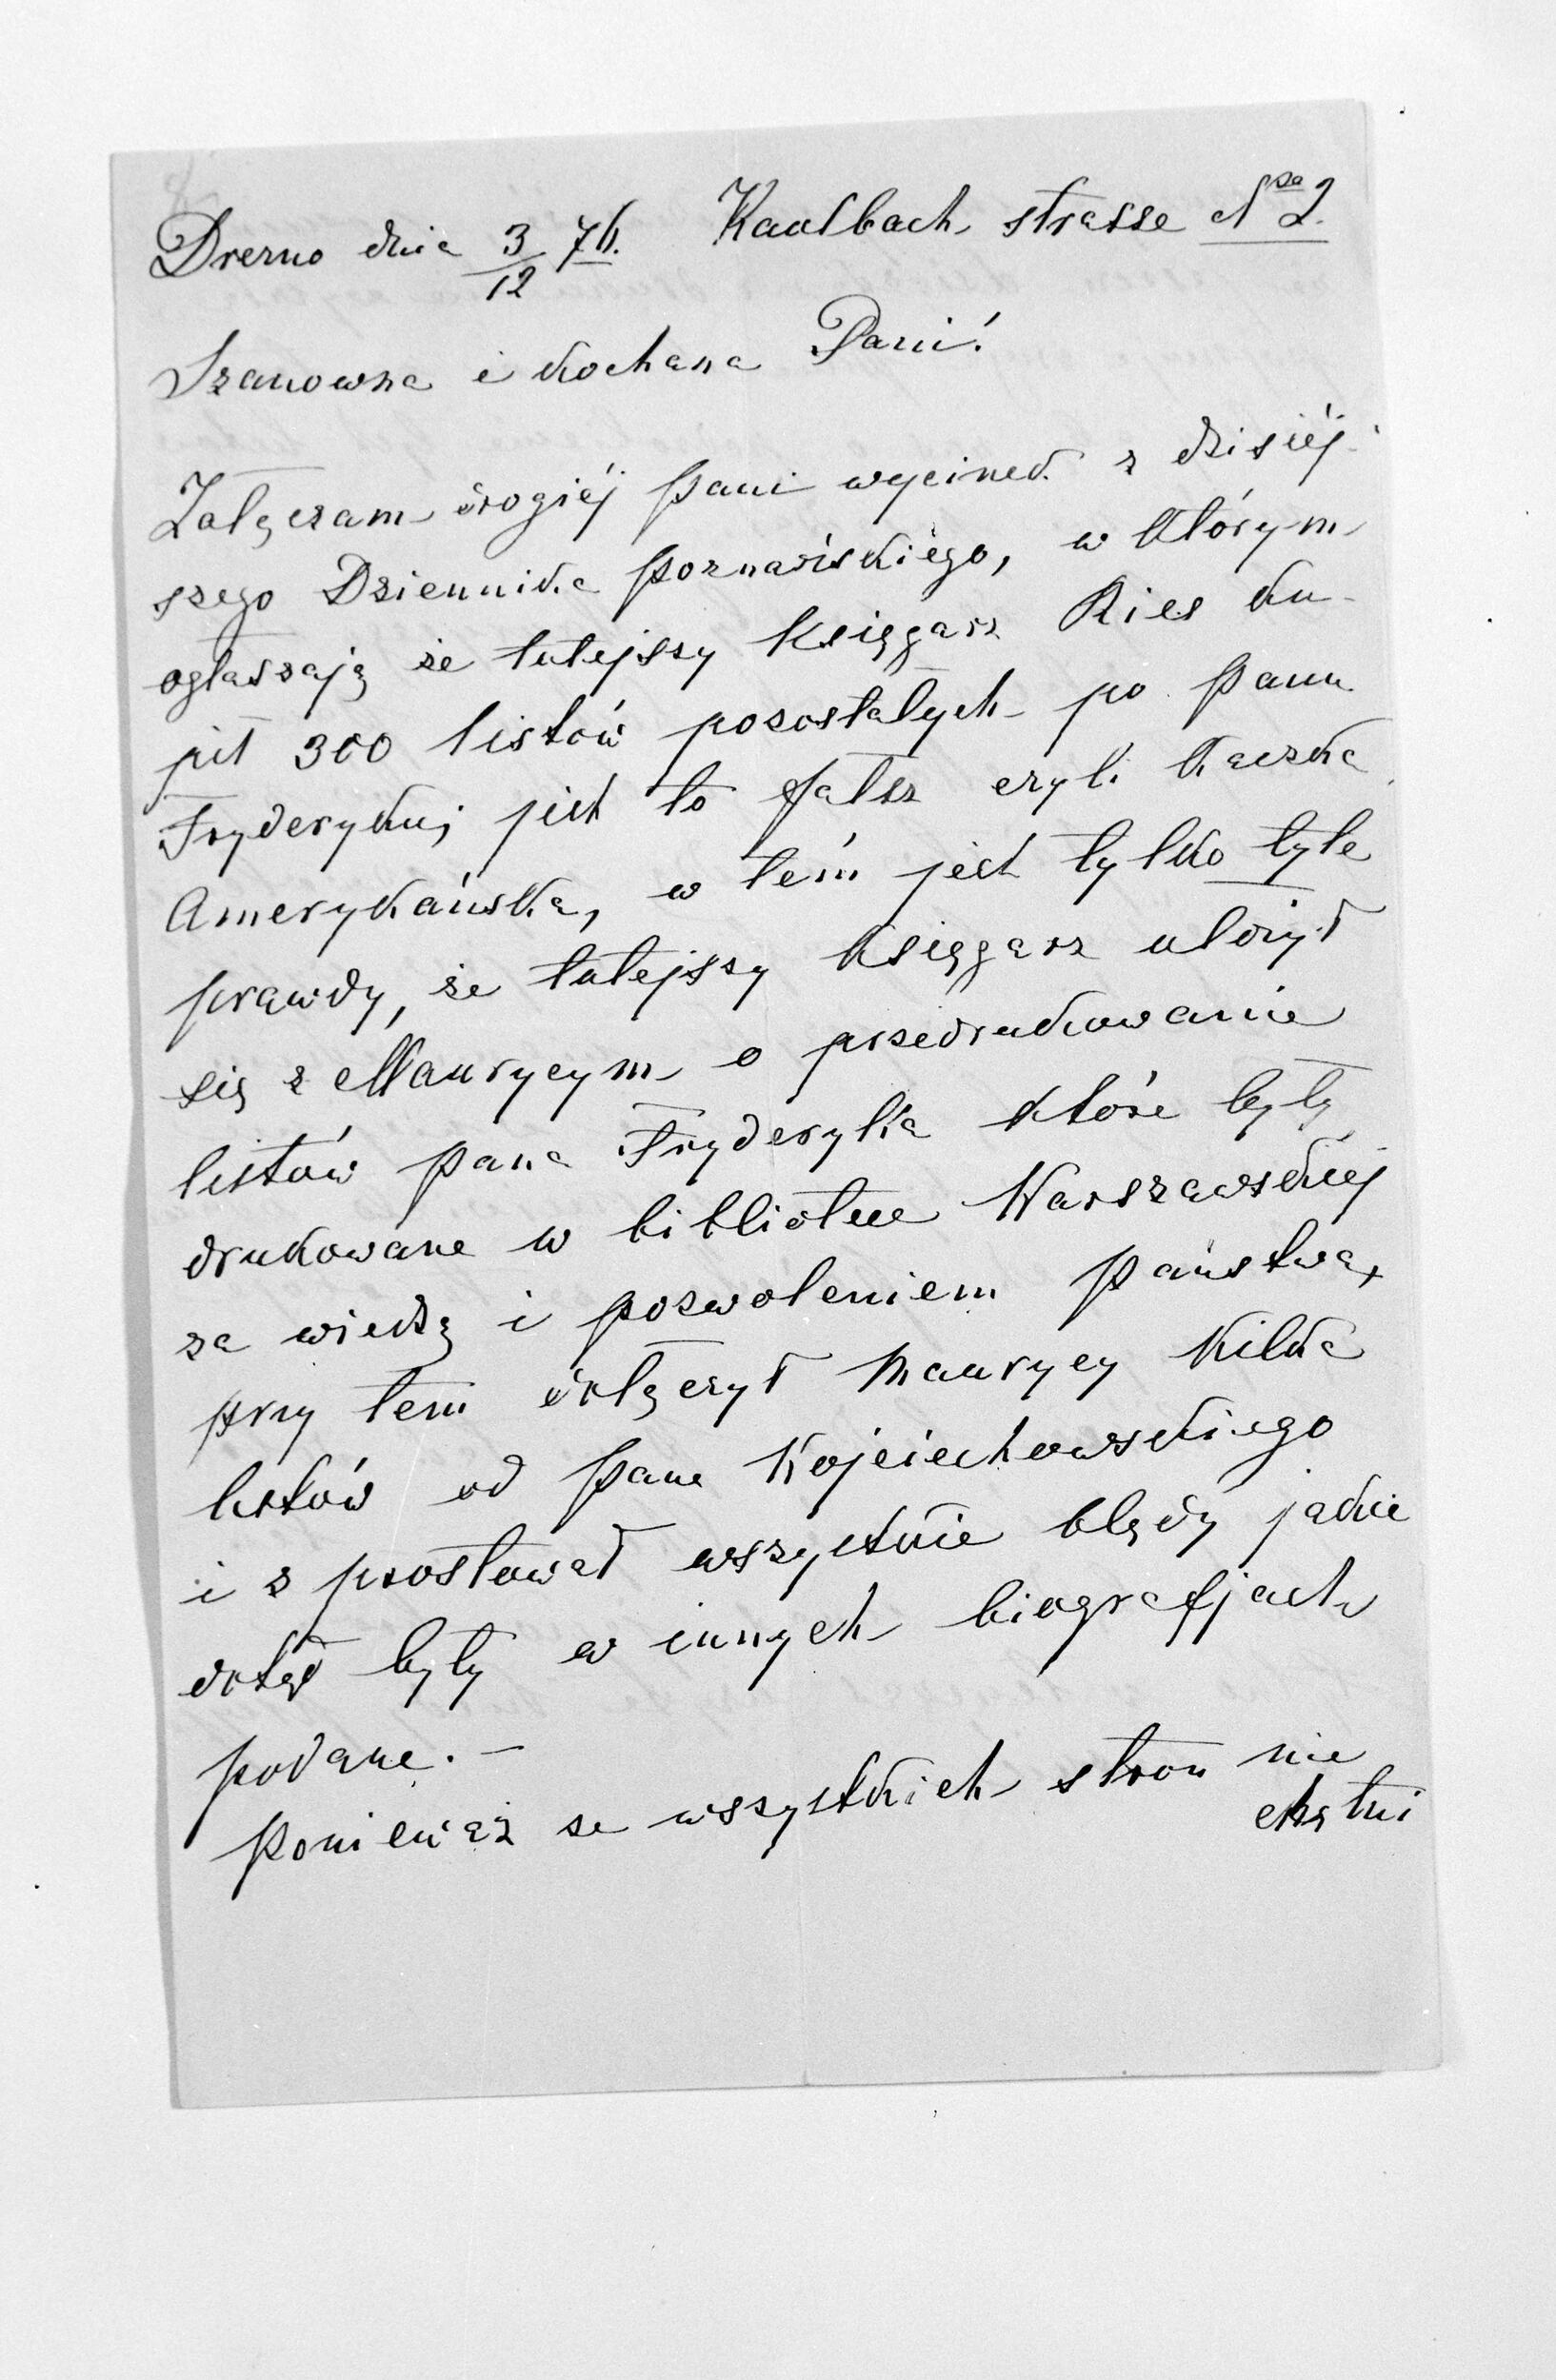 Drezno dnia 3/12 76. Kaulbach strasse No 2.
Szanowna i Kochana Pani!
Załączam drogiéj Pani wycinek z dzisiéj-
szego Dziennika Poznańskiego, w którym
ogłaszają że tutejszy Księgarz Ries ku-
pił 300 listów pozostałych po Panu
Fryderyku; jest to fałsz czyli Kaczka
Amerykańska, w tém jest tylko tyle
prawdy, że tutejszy Księgarz ułożył
się z Maurycym o przedrukowanie
listów Pana Fryderyka które były
drukowane w bibliotece Warszawskiej
za wiedzą i pozwoleniem Państwa,
przy tem dołączył Maurycy kilka
listów od Pana Wojciechowskiego
i sprostował wszystkie błędy jakie
dotąd były w innych biografjach
podane. —
Ponieważ ze wszystkich stron nie
chętni